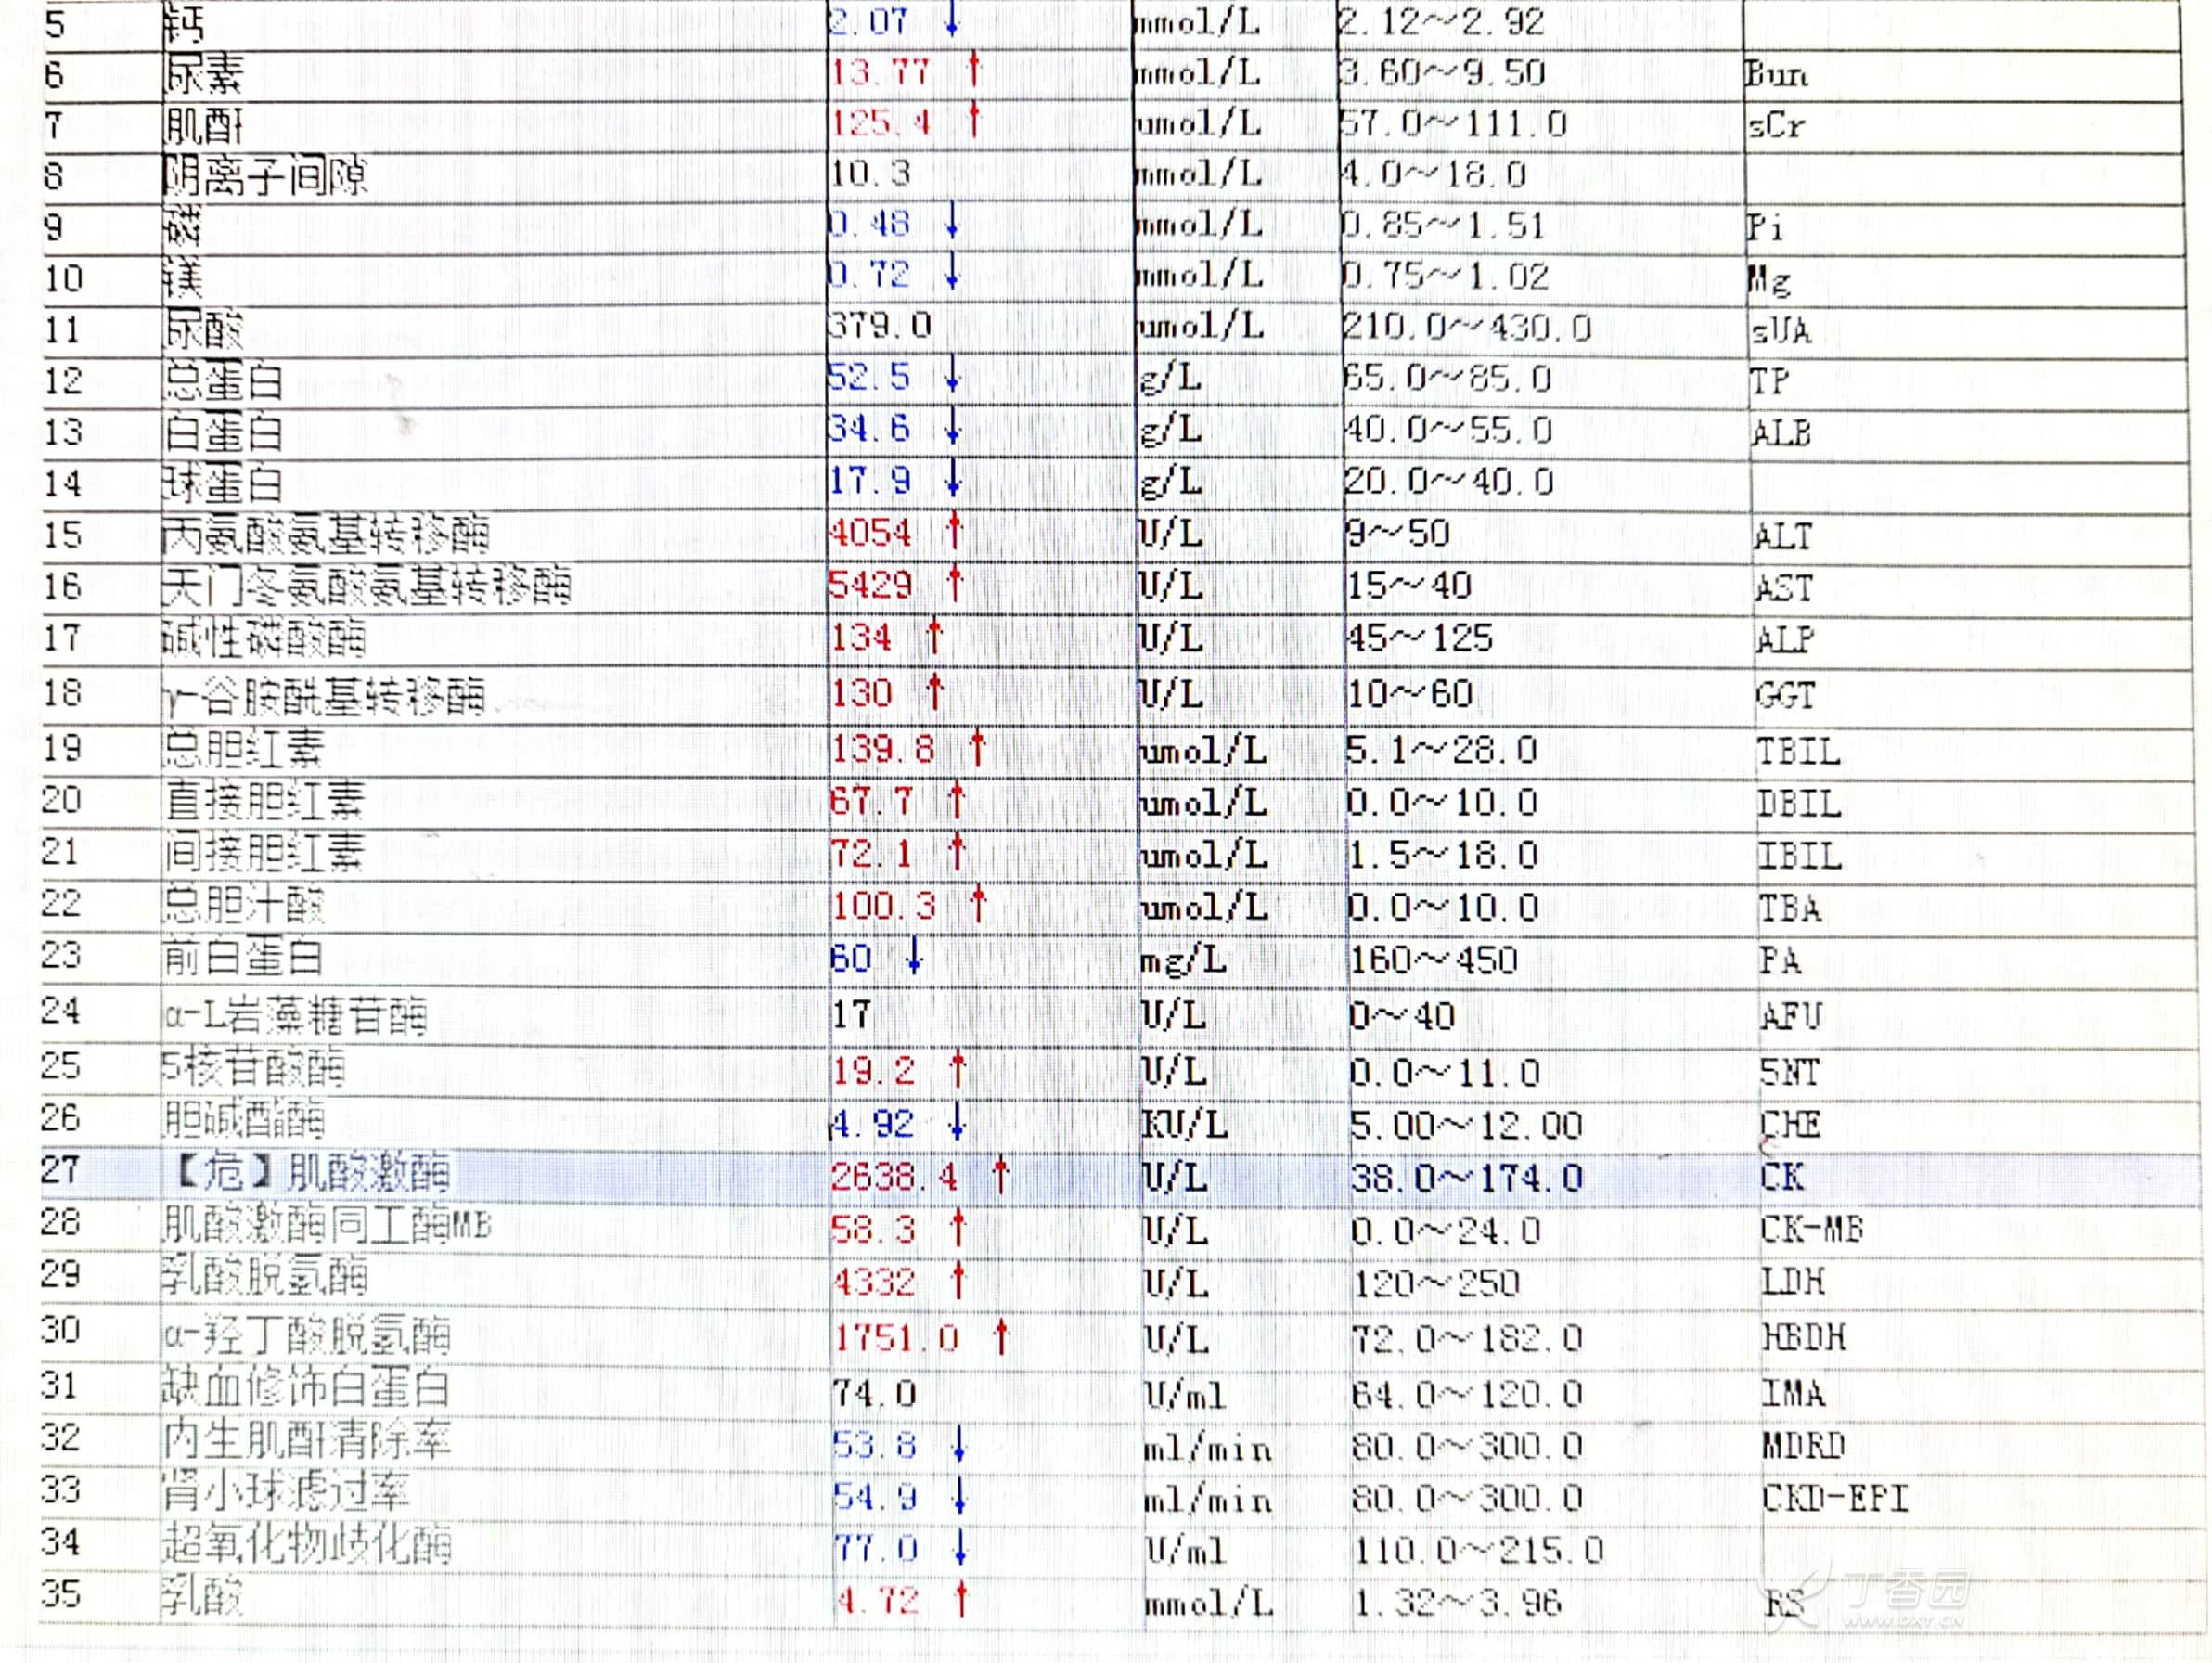 5 钙 2.07 ↓ mmol/L 2.12～2.92
6 尿素 13.77 ↑ mmol/L 3.60～9.50 Bun
7 肌酐 125.4 ↑ umol/L 57.0～111.0 sCr
8 阴离子间隙 10.3 mmol/L 4.0～18.0
9 磷 0.48 ↓ mmol/L 0.85～1.51 Pi
10 镁 0.72 ↓ mmol/L 0.75～1.02 Mg
11 尿酸 379.0 umol/L 210.0～430.0 sUA
12 总蛋白 52.5 ↓ g/L 65.0～85.0 TP
13 白蛋白 34.6 ↓ g/L 40.0～55.0 ALB
14 球蛋白 17.9 ↓ g/L 20.0～40.0
15 丙氨酸氨基转移酶 4054 ↑ U/L 9～50 ALT
16 天门冬氨酸氨基转移酶 5429 ↑ U/L 15～40 AST
17 碱性磷酸酶 134 ↑ U/L 45～125 ALP
18 γ-谷胺酰基转移酶 130 ↑ U/L 10～60 GGT
19 总胆红素 139.8 ↑ umol/L 5.1～28.0 TBIL
20 直接胆红素 67.7 ↑ umol/L 0.0～10.0 DBIL
21 间接胆红素 72.1 ↑ umol/L 1.5～18.0 IBIL
22 总胆汁酸 100.3 ↑ umol/L 0.0～10.0 TBA
23 前白蛋白 60 ↓ mg/L 160～450 PA
24 α-L岩藻糖苷酶 17 U/L 0～40 AFU
25 5核苷酸酶 19.2 ↑ U/L 0.0～11.0 5NT
26 胆碱酯酶 4.92 ↓ KU/L 5.00～12.00 CHE
27 【危】肌酸激酶 2638.4 ↑ U/L 38.0～174.0 CK
28 肌酸激酶同工酶MB 58.3 ↑ U/L 0.0～24.0 CK-MB
29 乳酸脱氢酶 4332 ↑ U/L 120～250 LDH
30 α-羟丁酸脱氢酶 1751.0 ↑ U/L 72.0～182.0 HBDH
31 缺血修饰白蛋白 74.0 U/ml 64.0～120.0 IMA
32 内生肌酐清除率 53.8 ↓ ml/min 80.0～300.0 MDRD
33 肾小球滤过率 54.9 ↓ ml/min 80.0～300.0 CKD-EPI
34 超氧化物歧化酶 77.0 ↓ U/ml 110.0～215.0
35 乳酸 4.72 ↑ mmol/L 1.32～3.96 RS
丁香园
WWW.DXY.CN